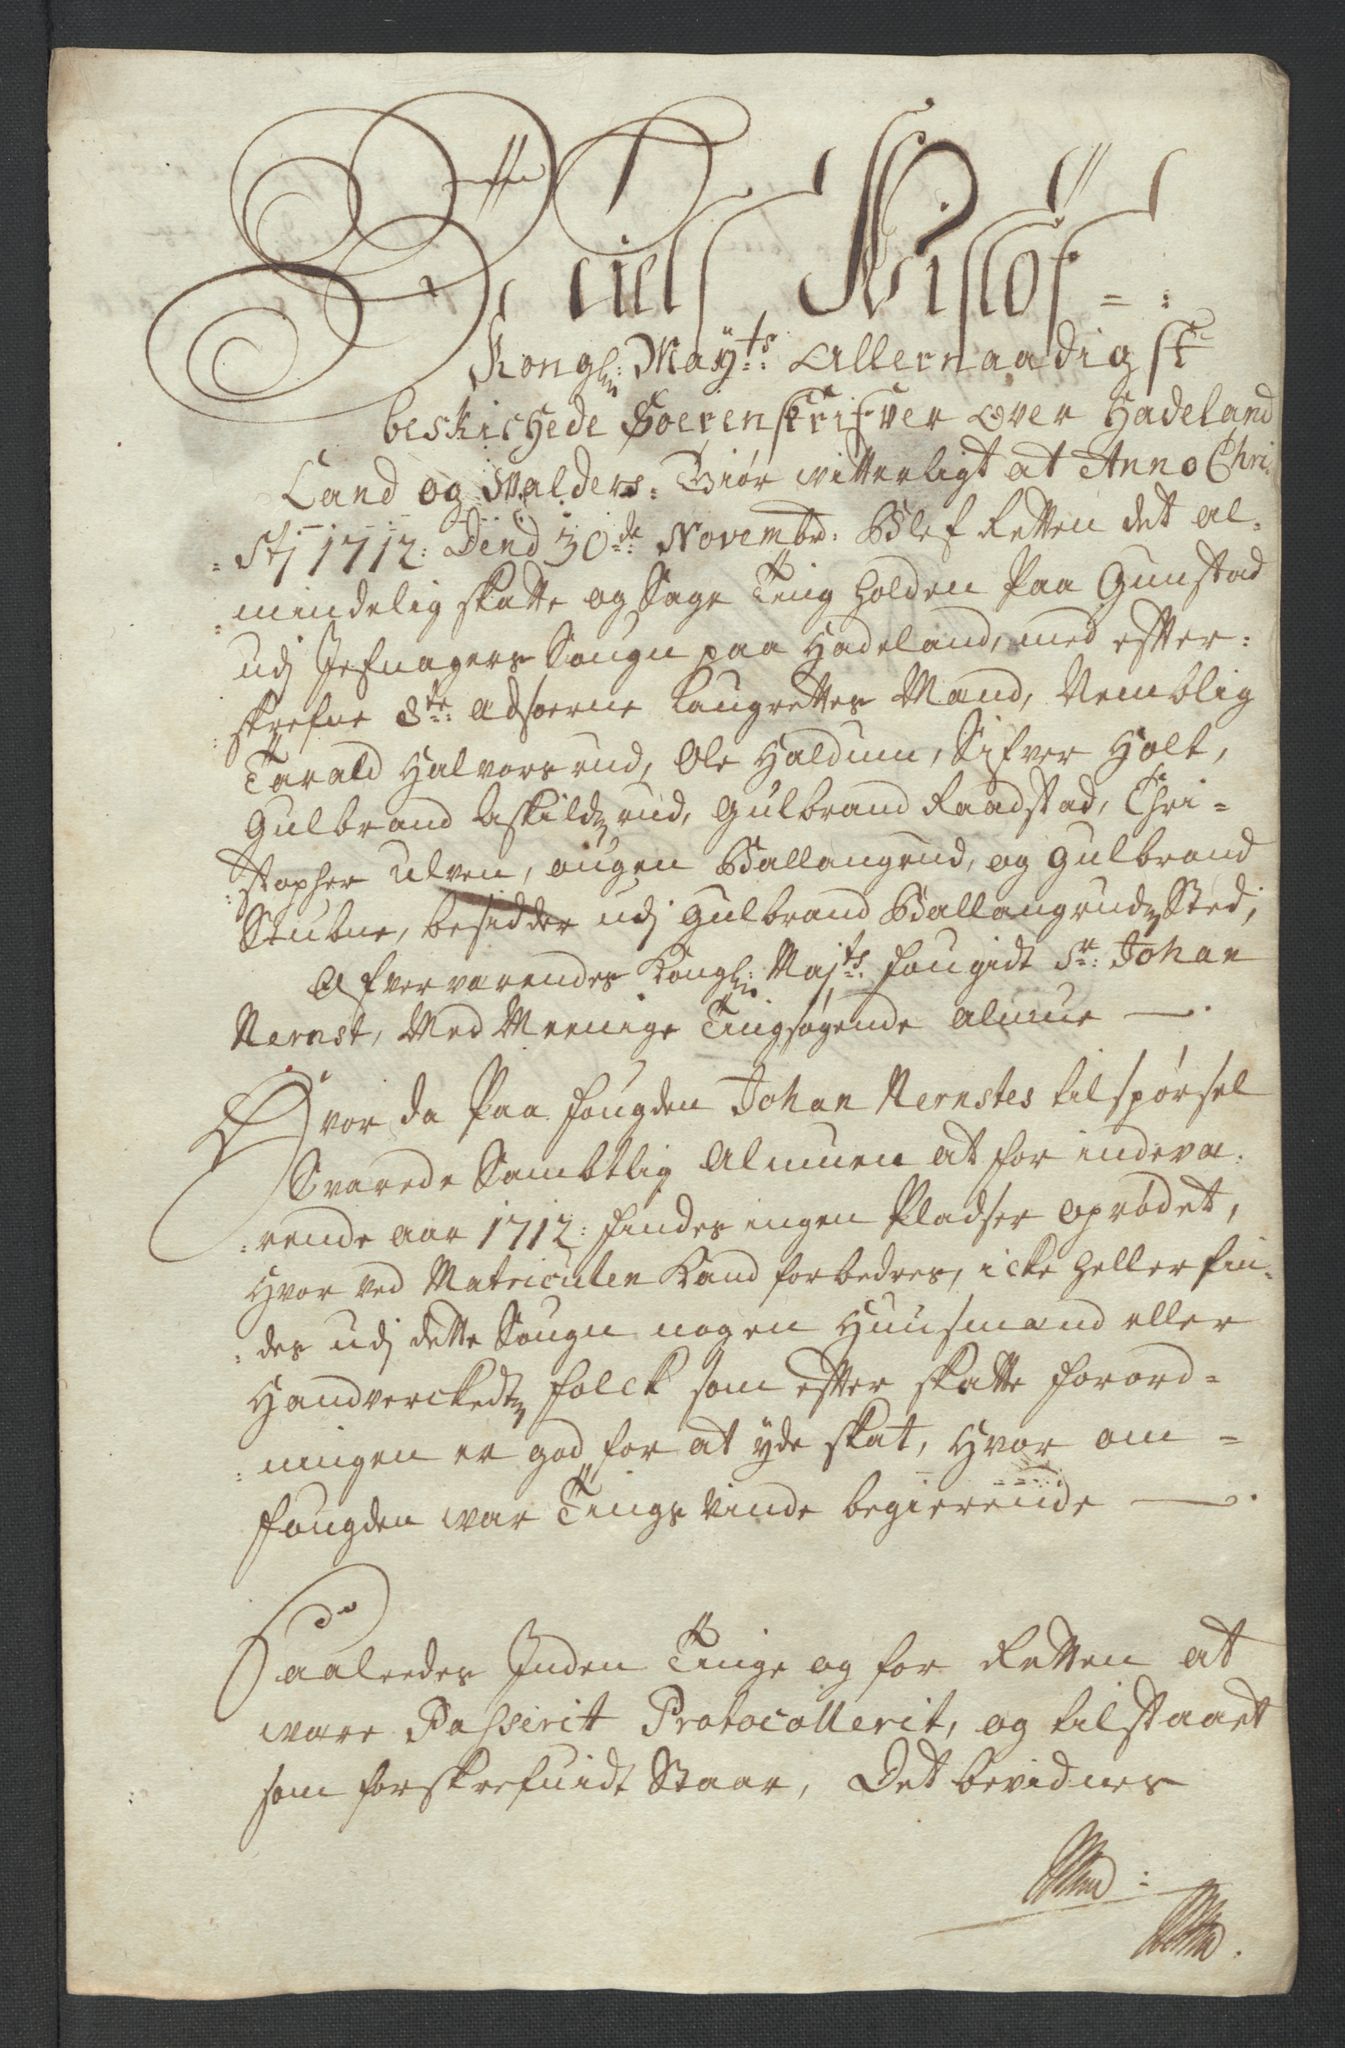 Niels Weslöf =:
Kongl: Mayts: Allernaadigste
beskichede Soerenskrifver over Hadeland
Land og Walders. Giör witterligt at Anno Chri-
:stj 1712: Dend 30de: Novembr: Blef Retten det al-
:mindelig skatte og Sage Ting holden Paa Gunstad
udj Jefnagers Sougn paa Hadeland, med efter:
:skrefne 8te: Adsorne Laugrettes Mænd, Nemblig
Tarald Halvorsrud, Ole Haldum, Sifver Holt,
Gulbrand Askildzrud, Gulbrand Raadstad, Chri-
:stopher Ulven, Augen Ballangrud, og Gulbrand
Stubne, besidder udj Gulbrand Ballangrudz Sted,
Ofververendes Kongl: Majts: Fougidt Sr: Johan
Nernst, Med Meenige Tingsøgende Almue —.
Hvor da Paa fougden Johan Nernstes tilspörsel
Svarede Sambtlig Almuen at for indeva-
:rende aar 1712: findes ingen Pladser oprödet,
Hvor ved Matriculen Kand forbedres, icke heller fin-
:des udj dette Sougn nogen Huusmænd eller
Handverckedtz folck som efter skatte forord-
:ningen er god for at yde skat, Hvor om -
fougden war Tings vinde begierende —.
Saaleedes Inden Tinge og for Retten at
ware Passerit Protocollerit, og tilstaaet
som forskrefuidt Staar, Det bevidnes